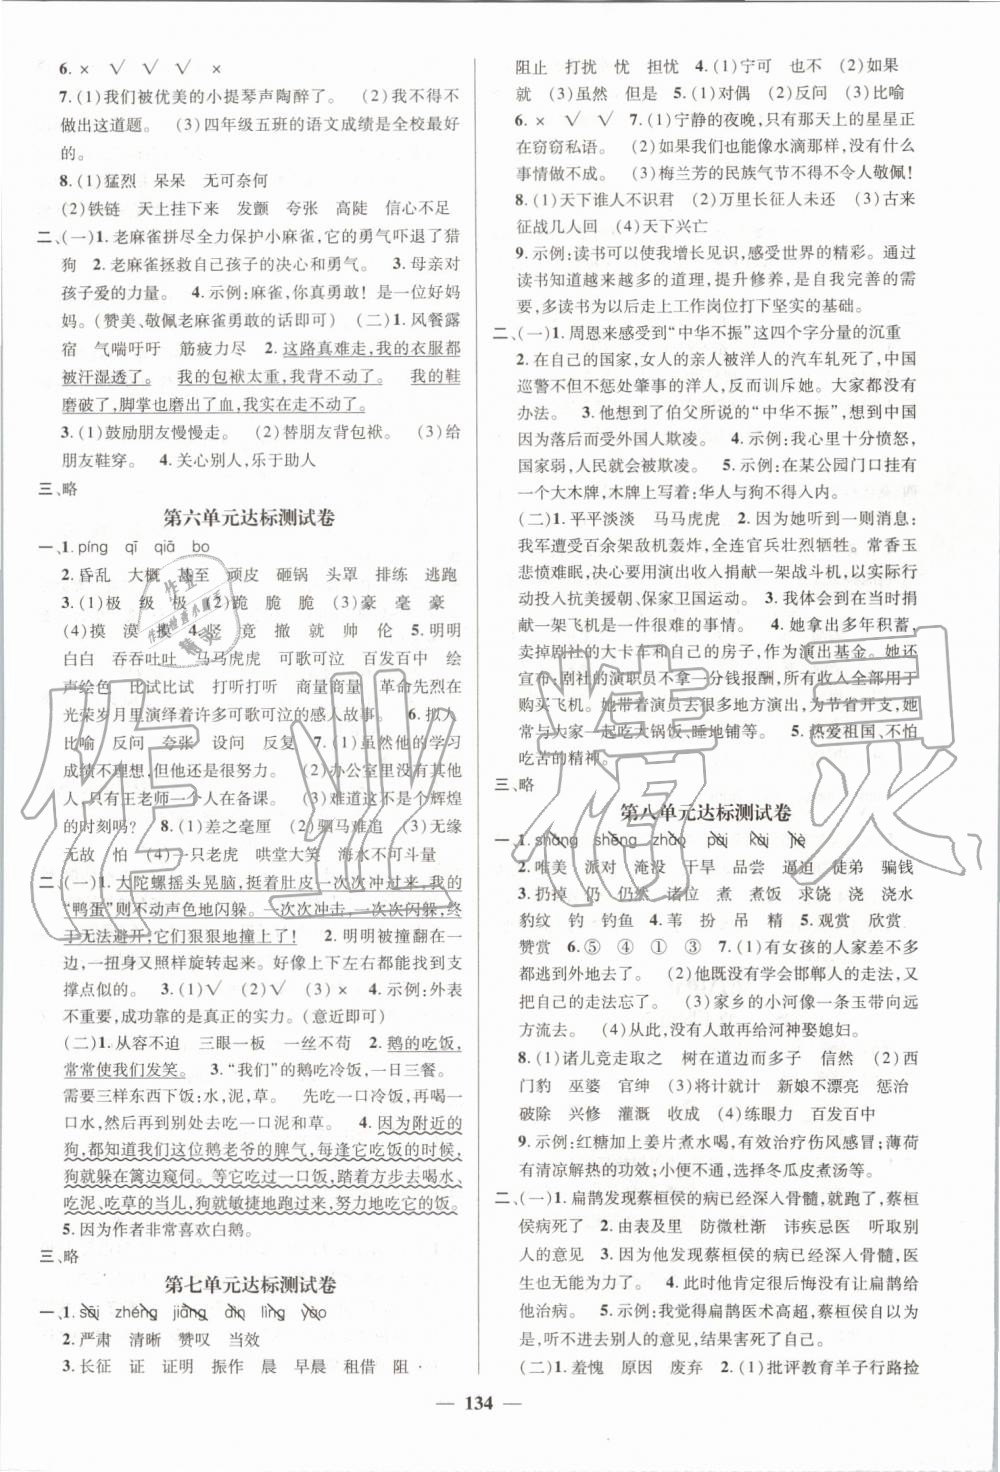 6. × √ √ √ ×
7. (1)我们被优美的小提琴声陶醉了。 (2)我不得不
做出这道题。 (3)四年级五班的语文成绩是全校最好
的。
8. (1)猛烈 呆呆 无可奈何
(2)铁链 天上挂下来 发颤 夸张 高陡 信心不足
二、(一)1. 老麻雀拼尽全力保护小麻雀,它的勇气吓退了猎
狗 2. 老麻雀拯救自己孩子的决心和勇气。 3. 母亲对
孩子爱的力量。 4. 示例:麻雀,你真勇敢!是一位好妈
妈。(赞美、敬佩老麻雀勇敢的话即可) (二)1. 风餐露
宿 气喘吁吁 筋疲力尽 2. 这路真难走,我的衣服都
被汗湿透了。 我的包袱太重,我背不动了。 我的鞋
磨破了,脚掌也磨出了血,我实在走不动了。
3. (1)鼓励朋友慢慢走。 (2)替朋友背包袱。 (3)给
朋友鞋穿。 4. 关心别人,乐于助人
三、略
第六单元达标测试卷
一、1. píng qī qiā bo
2. 昏乱 大概 甚至 顽皮 砸锅 头罩 排练 逃跑
3. (1)极 级 极 (2)跪 脆 脆 (3)豪 毫 豪
(4)摸 漠 摸 4. 竖 竟 撤 就 帅 伦 5. 明明
白白 吞吞吐吐 马马虎虎 可歌可泣 百发百中 绘
声绘色 比试比试 打听打听 商量商量 革命先烈在
光荣岁月里演绎着许多可歌可泣的感人故事。 6. 拟人
比喻 反问 夸张 设问 反复 7. (1)虽然他的学习
成绩不理想,但他还是很努力。 (2)办公室里没有其他
人,只有王老师一个人在备课。 (3)难道这不是个辉煌
的时刻吗? 8. (1)差之毫厘 (2)驷马难追 (3)无缘
无故 怕 (4)一只老虎 哄堂大笑 海水不可斗量
二、(一)1. 大陀螺摇头晃脑,挺着肚皮一次次冲过来,我的
“鸭蛋”则不动声色地闪躲。一次次冲击,一次次闪躲,终
于无法避开,它们狠狠地撞上了! 2. 明明被撞翻在一
边,一扭身又照样旋转起来,好像两头都能支
撑点似的。 3. (1)√ (2)√ (3)× 4. 示例:外表
不重要,成功靠的是真正的实力。(意近即可)
(二)1. 从容不迫 三眼一板 一丝不苟 2. 鹅的吃饭,
常常使我们发笑。 3. “我们”的鹅吃冷饭,一日三餐。
它需要三样东西下饭:水,泥,草。 先吃一口冷饭,再喝一
口水,然后再到别处去吃一口泥和草。 4. 因为附近的
狗,都知道我们这位鹅老爷的脾气,每逢它吃饭的时候,
狗就躲在篱边窥伺。等它吃过一口饭,踏着方步去喝水、
吃泥、吃草的当儿,狗就敏捷地跑过来,努力地吃它的饭。
5. 因为作者非常喜欢白鹅。
三、略
第七单元达标测试卷
一、1. sāi zhéng jiāng yīn lìng yào
2. 严肃 清晰 赞叹 当效
3. 长征 证 证明 振作 晨 早晨 租借 阻
阻止 打扰 忧 担忧 4. (1)宁可 也不 (2)如果
就 (3)虽然 但是 5. (1)对偶 (2)反问 (3)比喻
6. × √ √ √ 7. (1)宁静的夜晚,只有那天上的星星正
在窃窃私语。 (2)如果我们也能像水滴那样,还有什么
事情做不成呢? (3)梅兰芳的民族气节不得不令人敬佩!
8. (1)天下谁人不识君 (2)万里长征人未还 (3)古来
征战几人回 (4)天下兴亡
9. 示例:读书可以使我增长见识,感受世界的精彩。通过
读书知道越来越多的道理,提升修养,是我自己完善的需
要,多读书为以后走上工作岗位打下坚实的基础。
二、(一)1. 周恩来感受到“中华不振”这四个字分量的沉重
2. 在自己的国家,女人的亲人被洋人的汽车轧死了,中国
巡警不但不惩处肇事的洋人,反而训斥她。大家都没有
办法。 3. 他想到了伯父所说的“中华不振”,想到中国
因为落后而受外国人欺凌。 4. 示例:我心里十分愤怒,
国家弱,人民就会被欺凌。 5. 示例:在某公园门口挂有
一个大木牌,木牌上写着:华人与狗不得入内。
(二)1. 平平淡淡 马马虎虎 2. 因为她听到一则消息:
我军遭受百余架敌机轰炸,全连官兵壮烈牺牲。常香玉
悲愤难忍,决心要用演出收入捐献一架战斗机,以实际行
动投入抗美援朝、保家卫国运动。 3. 我体会到在当时捐
献一架飞机是一件很难的事情。 4. 她拿出多年积蓄,
卖掉剧社的大卡车和自己的房子,作为演出基金。她还
宣布:剧社的演职员不拿一分钱报酬,所有收入全部用于
购买飞机。她带着演员走了许多地方演出,为节省开支,她
常与大家一起吃大锅饭、睡地铺等。 5. 热爱祖国、不怕
吃苦的精神。
三、略
第八单元达标测试卷
一、1. shāng shěng zhǎo pài kài jiè
2. 唯美 派对 淹没 干旱 尝品 逼迫 徒弟 骗钱
3. 扔掉 仍 仍然 诸位 煮 煮饭 求饶 浇 浇水
豹纹 钓 钓鱼 4. 苇 扮 吊 精 5. 观赏 欣赏
赞赏 6. ⑤ ④ ① ③ 7. (1)有女孩的人家差不多
都逃到外地去了。 (2)他没有学会邯郸人的走法,只
把自己的走法忘了。 (3)家乡的小河像一条玉带向远
方流去。 (4)从此,没有人敢再给河神娶媳妇。
8. (1)诸儿竞走取之 树在道边而多子 信然 (2)西
门豹 巫婆 官绅 (3)将计就计 新娘不漂亮 惩治
破除 兴修 灌溉 收成 (4)练眼力 百发百中
9. 示例:红糖加上姜片煮水喝,有效治疗伤风感冒;薄荷
有清凉解热的功效;小便不通,选择冬瓜皮煮汤。
二、(一)1. 扁鹊发现蔡桓侯的病已经深入骨髓,就跑了,蔡桓
侯病死了 2. 由表及里 防微杜渐 讳疾忌医 听取别
人的意见 3. 因为他发现蔡桓侯的病已经深入骨髓,医
生也无能为力。 4. 此时他肯定很后悔没有让扁鹊给
他治病。 5. 示例:我觉得扁鹊医术高超,蔡桓侯自以为
是,听不进去别人的意见,结果害死了自己。
(二)1. 羞愧 原因 废弃 2. (1)批评教育羊子行路捡
134
作业精灵